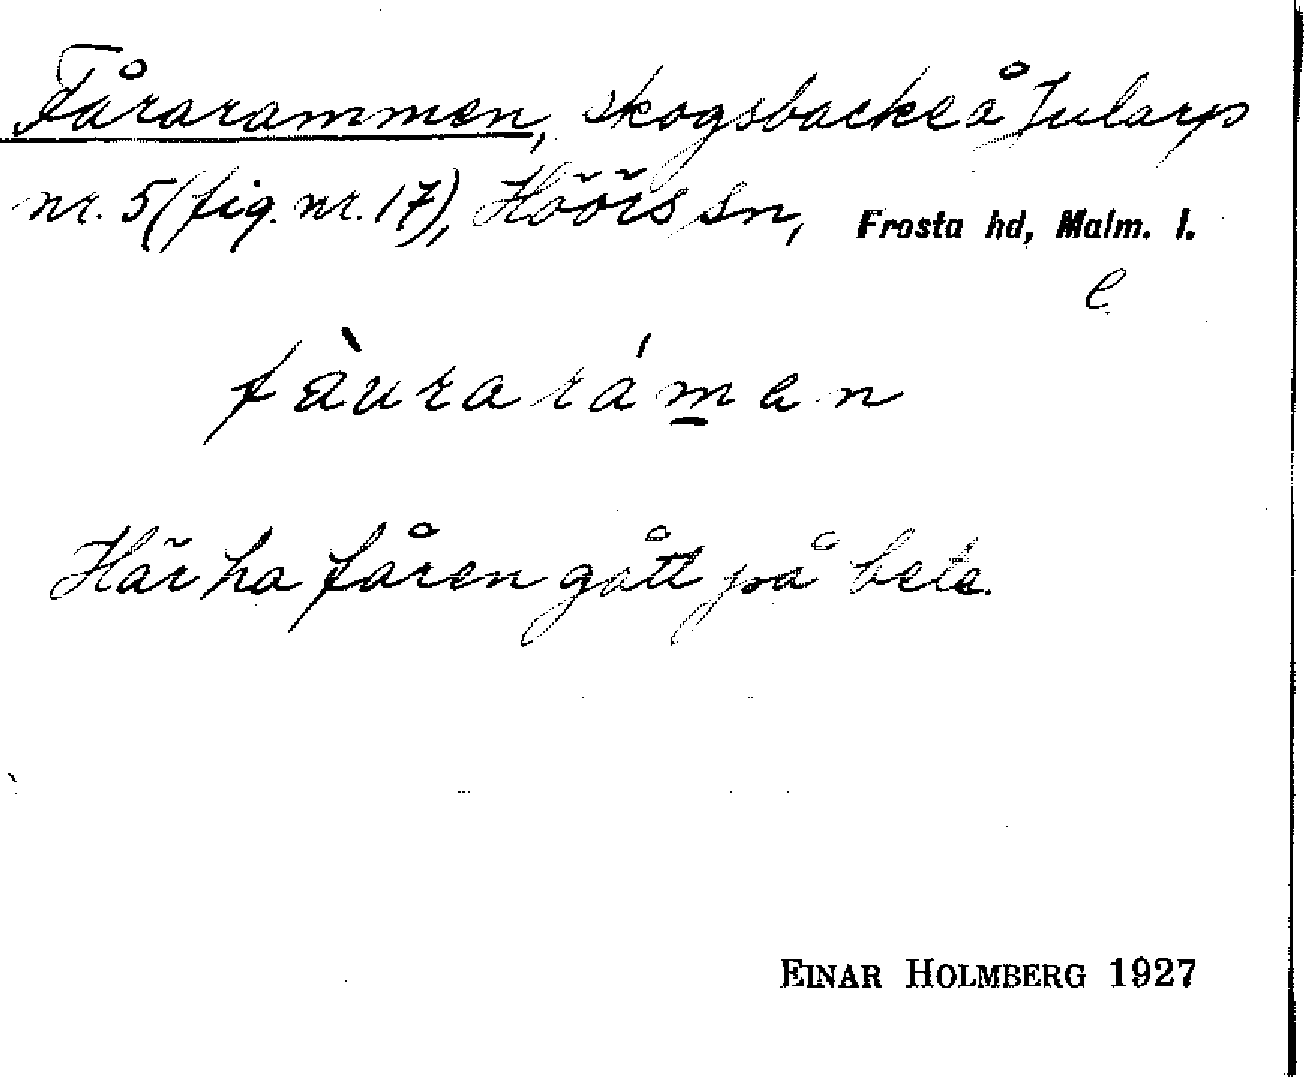 Fårarammen, skogsbacke å Jularp
nr. 5 (fig. nr. 17), Höörs sn, Frosta hd, Malm. l.
e
fàuraráman
Här ha fåren gått på bete.
EINAR HOLMBERG 1927